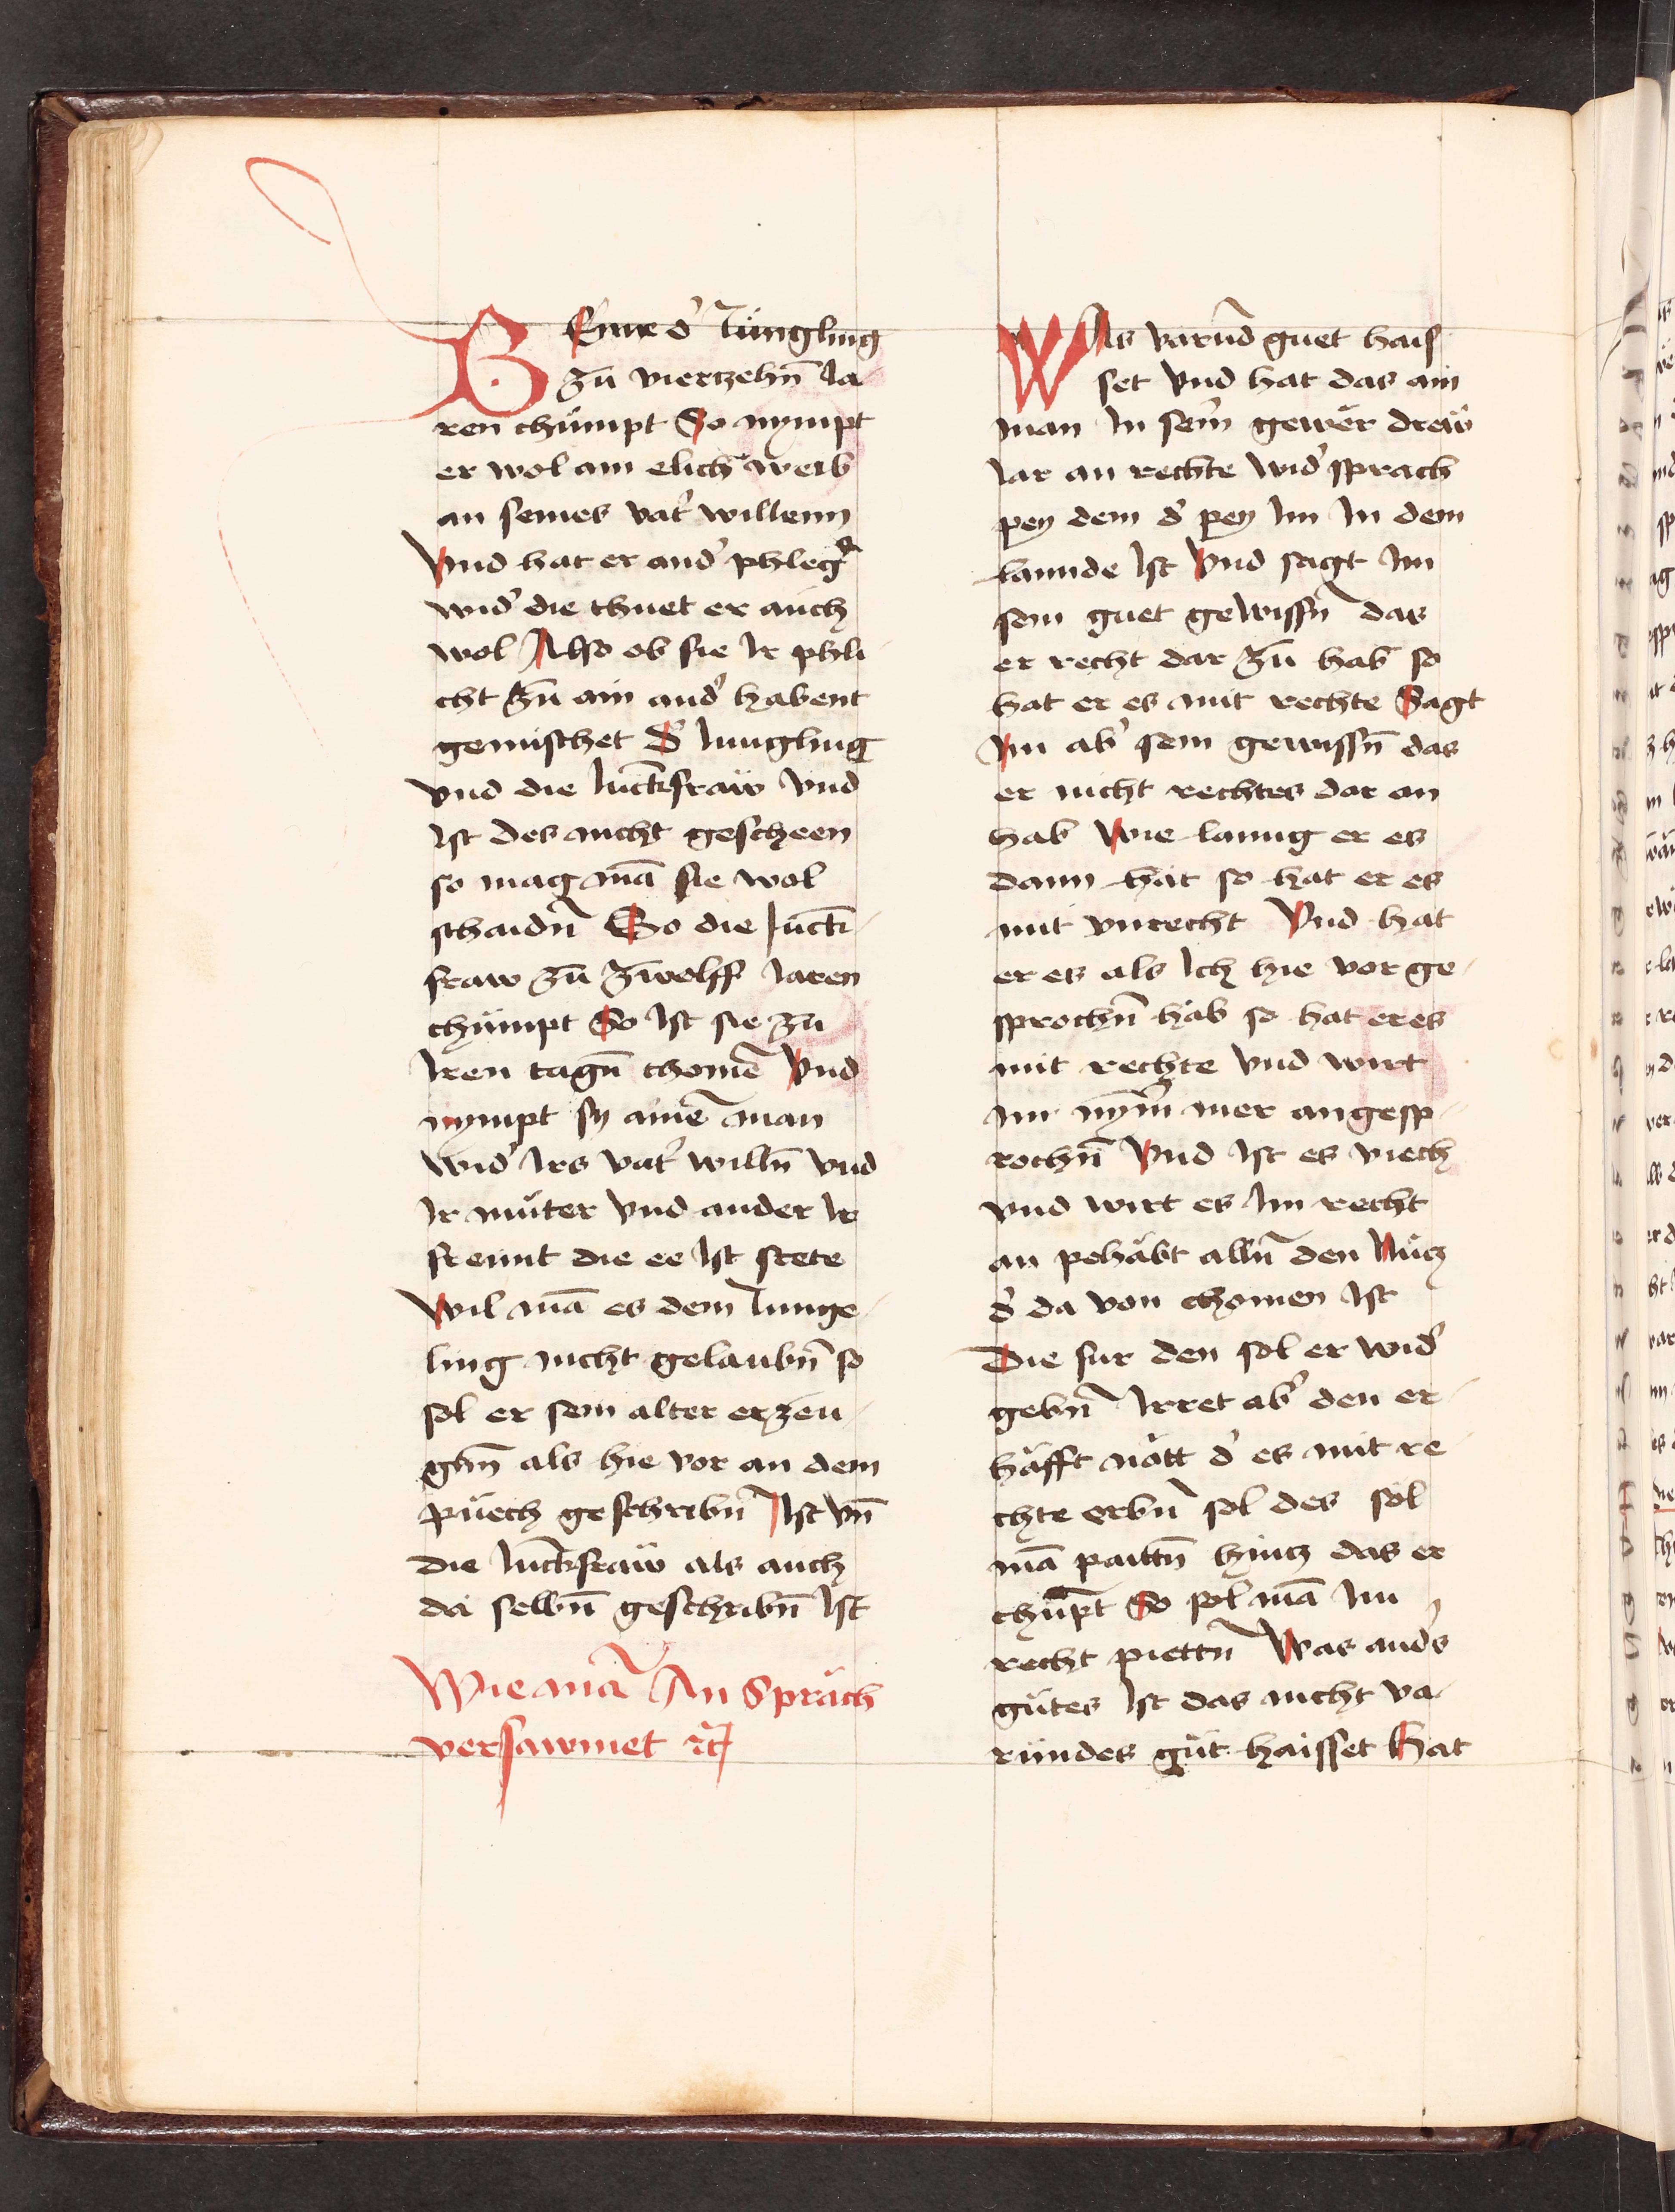 SEnne d' Jüngling
zu vierzehn̄ Ja-
ren chümpt So nympt
er wol ain elich weib
an seines vat' willenn
Vnd hat er and' phleg'
wid' die thuet er auch
wol Also ob sie Ir phli
cht zu ain and' habent
gemischet D' Jungling
vnd die Junckfraw vnd
Ist des nicht gescheen
so mag mā sie wol
schaidn̄ So die Junck-
fraw zu zwelff Jaren
chümpt So Ist sie zu
Iren tagn̄ chomē Vnd
nympt sy ainē man
wid' Irs vat' willn̄ vnd
Ir müter vnd ander Ir
freunt die ee Ist stete
Wil mā es dem Junge-
ling nicht gelaubn̄ so
sol er sein alter erzeu-
gnn̄ als hie vor an dem
püech geschribn̄ Ist vn̄
die Junckfraw als auch
da selbn̄ geschribn̄ Ist
Wie mā An Sprach
versawmet rc̄
WAs varund guet hais
set vnd hat das ain
man In sein̄ gewer drew
Jar an rechte wid' sprach
pey dem d' pey Im In dem
lannde Ist Vnd sagt Im
sein guet gewissn̄ das
er recht dar zu hab so
hat er es mit rechte Sagt
Im ab' sein gewissn̄ das
er nicht rechtes dar an
hab Wie lanng er es
dann hat so hat er es
mit vnrecht Vnd hat
er es als Ich hie vor ge-
sprochn̄ hab so hat er es
mit rechte vnd wirt
Im nym̄ mer angesp-
rochn̄ Vnd Ist es viech
vnd wirt es Im recht
an pehabt alln̄ den Nucz
d' da von chomen Ist
Die fur den sol er wid'
gebn̄ Irret ab' den er-
häfft nött d' es mit re-
chte erbn̄ sol des sol
mā paittn̄ hincz das er
chüpt So sol mā Im
recht piettn̄ Was and's
gütes Ist das nicht va-
rundes güt haisset Hat